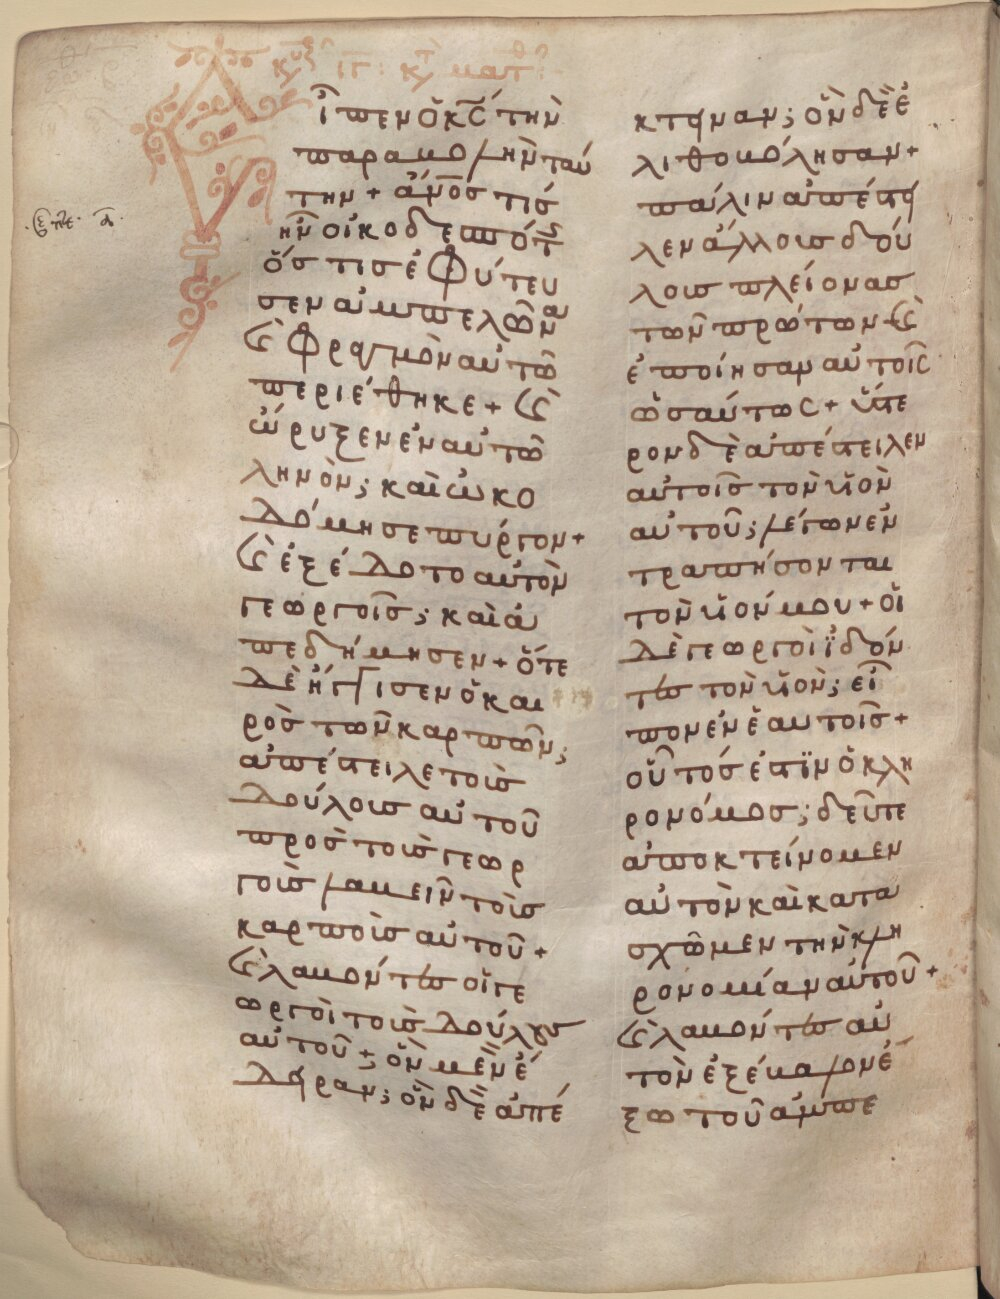 κυ ιγ: κτ ματθ
Εἶπεν ὁ κ̅ς̅ τὴν
παραβολὴν ταύ
την + ἄν̅ο̅ς τίς
ἦν οἰκοδεσπότης
ὅς τις ἐφύτευ
σεν ἀμπελῶνα
ϗ̀ φραγμὸν αὐτῶ
περιέθηκε + ϗ̀
ὤρυξεν ἐν αὐτῶ
ληνὸν; καὶ ὠκο
δόμησε πύργον +
ϗ̀ ἐξέδοτο αὐτὸν
γεωργοῖς; καὶ ἀ
πεδήμησεν + ὅτε
δὲ ἤγγισεν ὁ και
ρὸς τῶν καρπῶν;
ἀπέστειλε τοὺς
δούλους αὐτοῦ
πρὸς τοὺς γεωρ
γοὺς λαβεῖν τοὺς
καρποὺς αὐτοῦ +
ϗ̀ λαβόντες οἱ γε
ωργοὶ τοὺς δούλους
αὐτοῦ +; ὃν μὲν ἔ
δηραν; ὃν δὲ ἀπέ
κτηναν; ὃν δὲ ἐ
λιθοβόλησαν +
πάλιν ἀπέστη
λεν ἄλλους δού
λους πλείονας
τῶν πρώτων + ϗ̀
ἐποίησαν αὐτοῖς
ὡσαύτως + ὕστε
ρον δὲ ἀπέστειλεν
αὐτοῖς τὸν υἱὸν
αὐτοῦ; λέγων ἐν
τραπήσονται
τὸν υἱόν μου + οἱ
δὲ γεωργοὶ ϊδόν
τες τὸν υἱὸν; εἶ
πον ἐν ἑαυτοῖς +
οὗτός ἐστϊν ὁ κλη
ρονόμος; δεῦτε
ἀποκτείνομεν
αὐτὸν καὶ κατα
σχῶμεν τὴν κλη
ρονομίαν αὐτοῦ +
ϗ̀ λαβόντες αὐ
τὸν ἐξέβαλον ἔ
ξω τοῦ ἀμπε